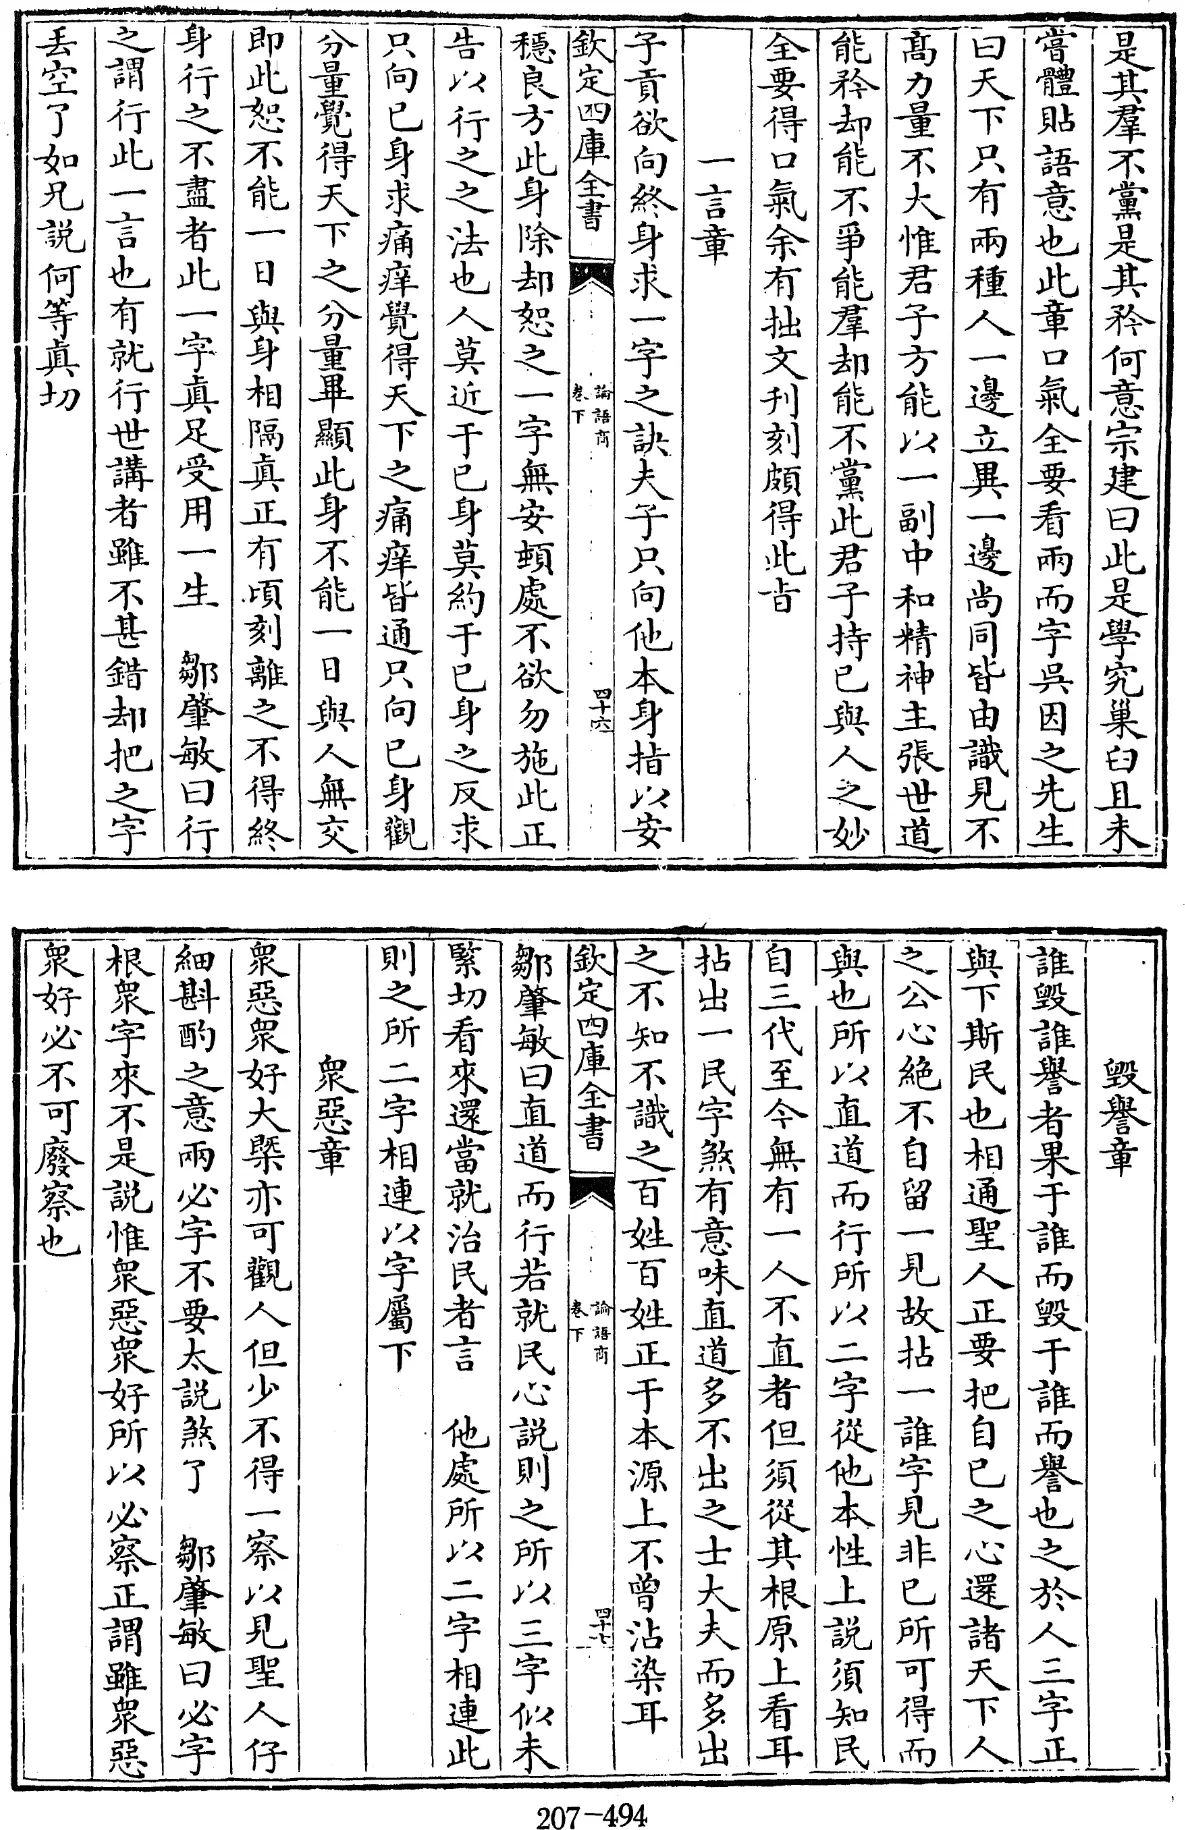 是其羣不黨是其矜何意宗建曰此是學究巢臼且未
嘗體貼語意也此章口氣全要看兩而字吳因之先生
曰天下只有兩種人一邊立異一邊尚同皆由識見不
高力量不大惟君子方能以一副中和精神主張世道
能矜却能不爭能羣却能不黨此君子持已與人之妙
全要得口氣余有拙文刊刻頗得此旨
一言章
子貢欲向終身求一字之訣夫子只向他本身指以安
欽定四庫全書
論語商
卷下
四十六
穩良方此身除却恕之一字無安頓處不欲勿施此正
告以行之之法也人莫近于已身莫約于已身之反求
只向已身求痛痒覺得天下之痛痒皆通只向已身觀
分量覺得天下之分量畢顯此身不能一日與人無交
即此恕不能一日與身相隔真正有頃刻離之不得終
身行之不盡者此一字真足受用一生　鄒肇敏曰行
之謂行此一言也有就行世講者雖不甚錯却把之字
丟空了如凡說何等真切
毀譽章
誰毀誰譽者果于誰而毀于誰而譽也之於人三字正
與下斯民也相通聖人正要把自已之心還諸天下人
之公心絶不自留一見故拈一誰字見非已所可得而
與也所以直道而行所以二字從他本性上說須知民
自三代至今無有一人不直者但須從其根原上看耳
拈出一民字煞有意味直道多不出之士大夫而多出
之不知不識之百姓百姓正于本源上不曾沾染耳
欽定四庫全書
論語商
卷下
四十七
鄒肇敏曰直道而行若就民心說則之所以三字似未
緊切看來還當就治民者言　他處所以二字相連此
則之所二字相連以字屬下
衆惡章
衆惡衆好大槩亦可觀人但少不得一察以見聖人仔
細斟酌之意兩必字不要太說煞了　鄒肇敏曰必字
根衆字來不是說惟衆惡衆好所以必察正謂雖衆惡
衆好必不可廢察也
207-494